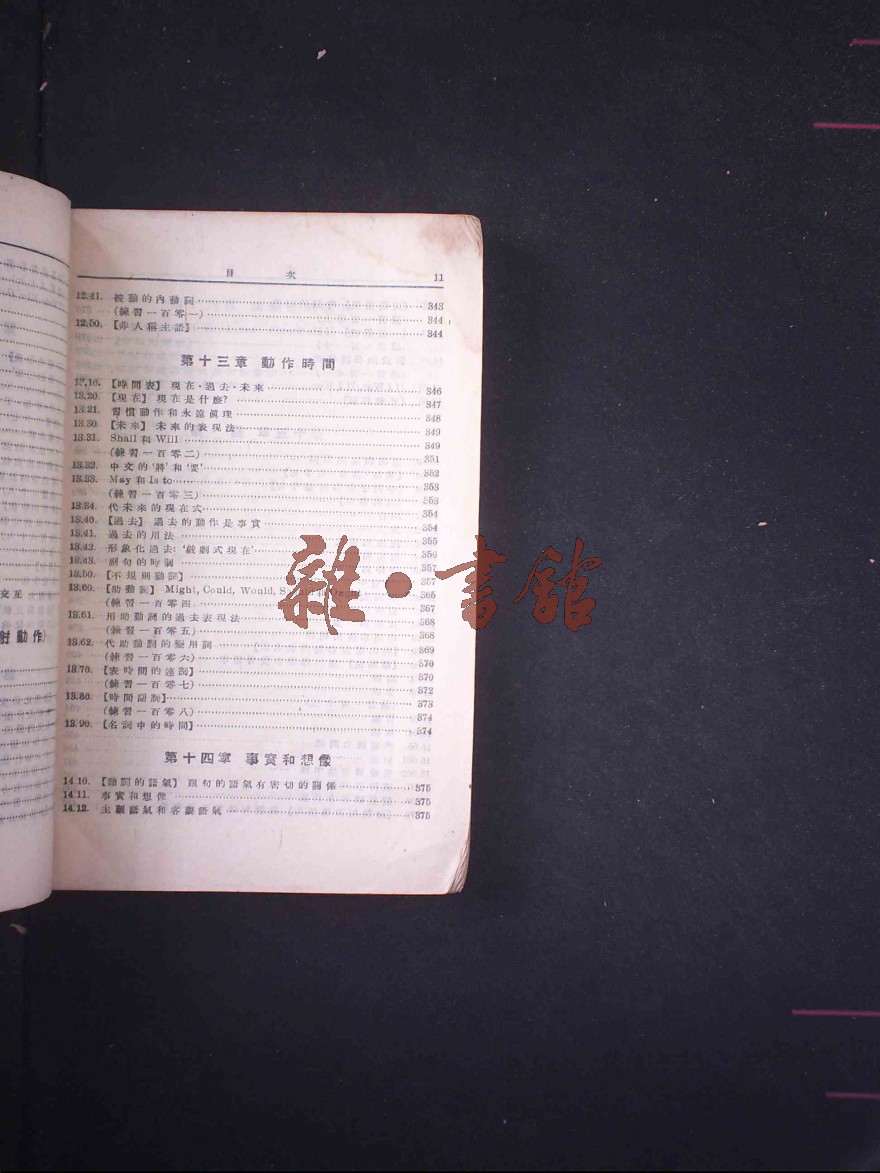 目 次 11
12.41. 被動的內動詞 343
(練習一百零一) 344
12.50. 【非人稱主語】 344
第十三章 動作時間
13.10. 【時間表】 現在·過去·未來 346
13.20. 【現在】 現在是什麼? 347
13.21. 習慣動作和永遠眞理 348
13.30. 【未來】 未來的表現法 349
13.31. Shall 和 Will 349
(練習一百零二) 351
13.32. 中文的‘將’和‘要’ 352
13.33. May 和 Is to 353
(練習一百零三) 353
13.34. 代未來的現在式 354
13.40. 【過去】 過去的動作是事實 354
13.41. 過去的用法 355
13.42. 形象化過去: ‘戲劇式現在’ 356
13.43. 副句的時制 357
13.50. 【不規則動詞】 357
13.60. 【助動詞】 Might, Could, Would, 365
(練習一百零四) 367
13.61. 用助動詞的過去表現法 368
(練習一百零五) 368
13.62. 代助動詞的變用詞 369
(練習一百零六) 370
13.70. 【表時間的連詞】 370
(練習一百零七) 372
13.80. 【時間副詞】 373
(練習一百零八) 374
13.90. 【名詞中的時間】 374
第十四章 事實和想像
14.10. 【動詞的語氣】 跟句的語氣有密切的關係 375
14.11. 事實和想像 375
14.12. 主觀語氣和客觀語氣 375
交互
射動作)
雜·書館